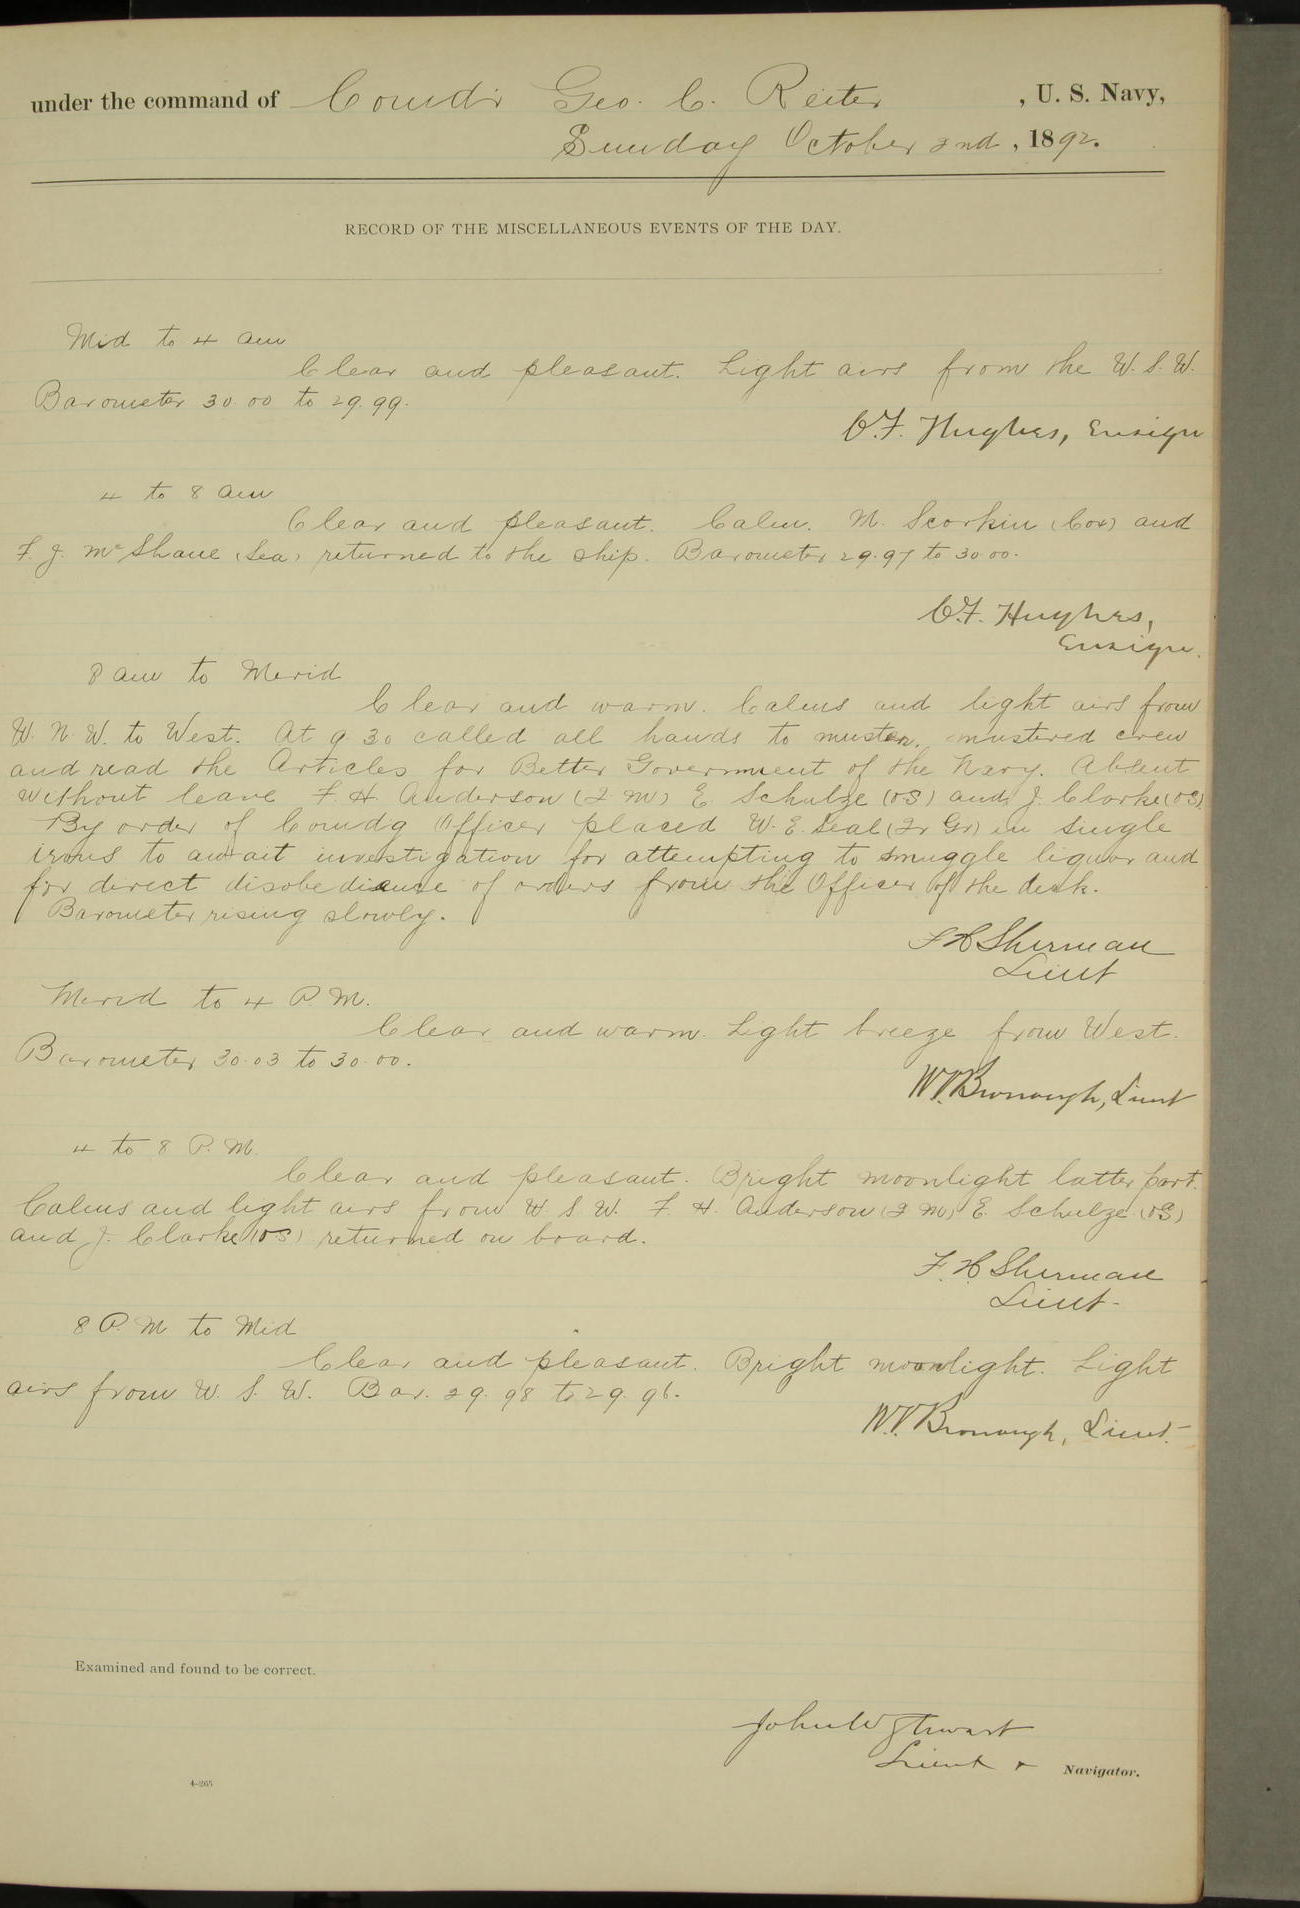 under the command of Comd'r Geo. C. Reiter, U. S. Navy,
Sunday October 2nd, 1892.
RECORD OF THE MISCELLANEOUS EVENTS OF THE DAY.
Mid to 4 am
Clear and pleasant. Light airs from the W. S. W.
Barometer 30.00 to 29.99.
C.F. Hughes, Ensign
4 to 8 am
Clear and pleasant. Calm. M. Scorkin (Cox) and
F. J. McShane (Sea) returned to the ship. Barometer 29.97 to 30.00.
C.F. Hughes,
Ensign.
8 am to Merid
Clear and warm. Calms and light airs from
W. N. W. to West. At 9 30 called all hands to muster, mustered crew
and read the Articles for Better Government of the Navy. Absent
without leave F. H. Anderson (2 M) E. Schulze (OS) and J. Clarke (OS).
By order of Comdg Officer placed W. E. Seal (Gr) in single
irons to await investigation for attempting to smuggle liquor and
for direct disobedience of orders from the Officer of the deck.
Barometer rising slowly.
F H Sherman
Lieut
Merid to 4 P. M.
Clear and warm. Light breeze from West.
Barometer 30.03 to 30.00.
W.V. Bronaugh, Lieut
4 to 8 P. M.
Clear and pleasant. Bright moonlight latter part.
Calms and light airs from W. S. W. F. H. Anderson (2 M) E. Schulze (OS)
and J. Clarke (OS) returned on board.
F. H Sherman
Lieut.
8 P. M to Mid
Clear and pleasant. Bright moonlight. Light
airs from W. S. W. Bar. 29.98 to 29.96.
W.V. Bronaugh, Lieut.
Examined and found to be correct.
John W Stewart
Lieut & Navigator.
4-265